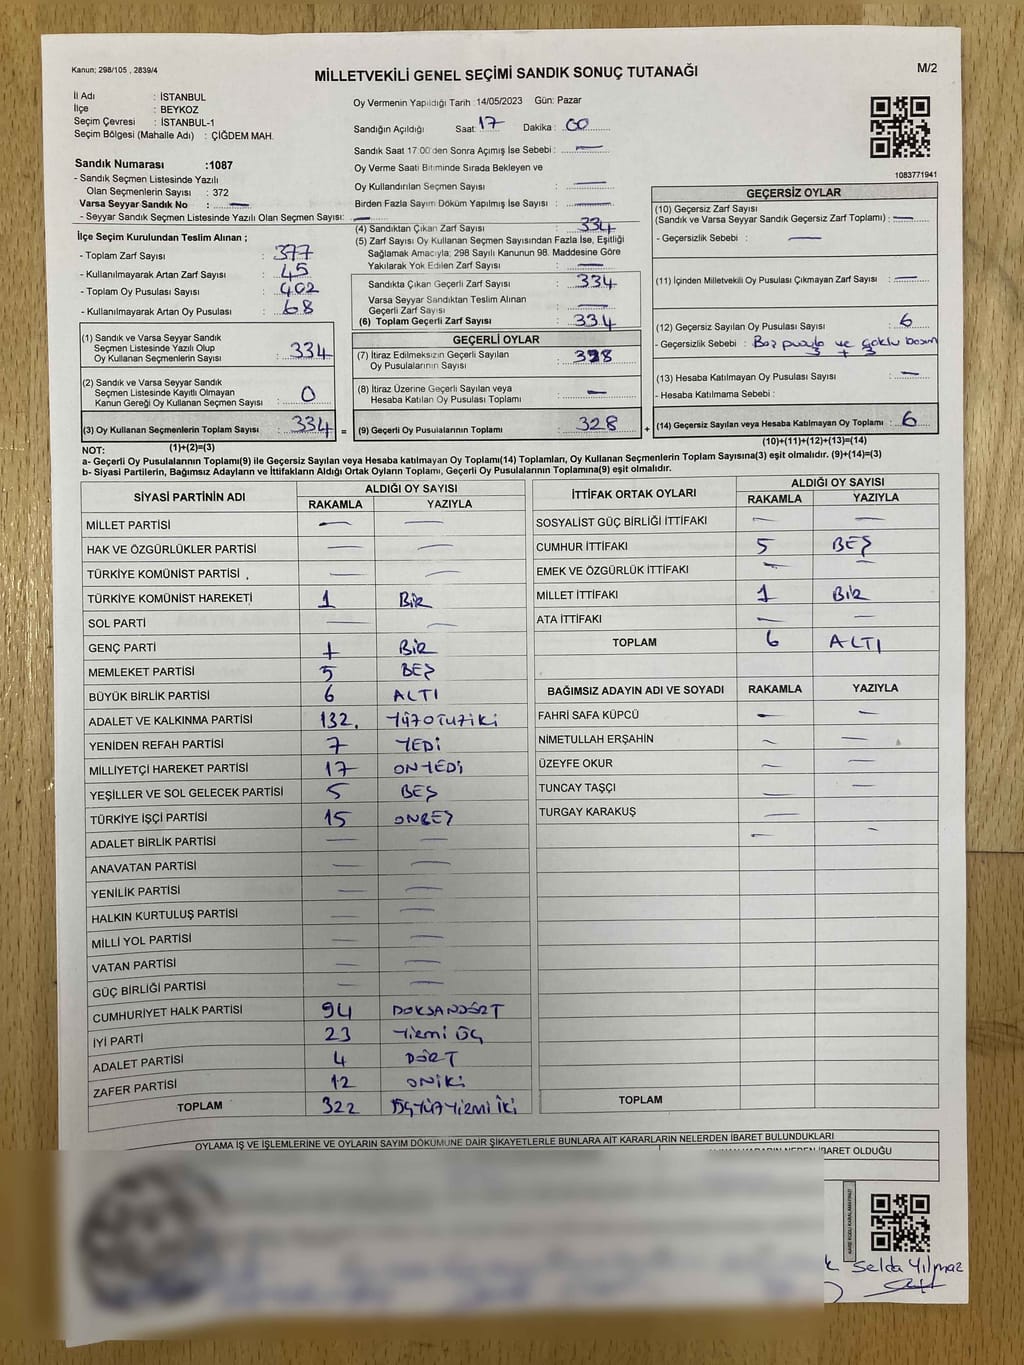 Kanun; 298/105 , 2839/4
MİLLETVEKİLİ GENEL SEÇİMİ SANDIK SONUÇ TUTANAĞI
M/2
İl Adı : İSTANBUL
İlçe : BEYKOZ
Seçim Çevresi : İSTANBUL-1
Seçim Bölgesi (Mahalle Adı) : ÇİĞDEM MAH.
Sandık Numarası :1087
- Sandık Seçmen Listesinde Yazılı
Olan Seçmenlerin Sayısı : 372
Varsa Seyyar Sandık No : —
- Seyyar Sandık Seçmen Listesinde Yazılı Olan Seçmen Sayısı: —
Oy Vermenin Yapıldığı Tarih :14/05/2023 Gün: Pazar
Sandığın Açıldığı Saat: 17 Dakika : 00
Sandık Saat 17:00'den Sonra Açımış İse Sebebi : —
Oy Verme Saati Bitiminde Sırada Bekleyen ve
Oy Kullandırılan Seçmen Sayısı : —
Birden Fazla Sayım Döküm Yapılmış İse Sayısı : —
1083771941
İlçe Seçim Kurulundan Teslim Alınan ;
- Toplam Zarf Sayısı : 377
- Kullanılmayarak Artan Zarf Sayısı : 45
- Toplam Oy Pusulası Sayısı : 402
- Kullanılmayarak Artan Oy Pusulası : 68
(1) Sandık ve Varsa Seyyar Sandık
Seçmen Listesinde Yazılı Olup
Oy Kullanan Seçmenlerin Sayısı : 334
(2) Sandık ve Varsa Seyyar Sandık
Seçmen Listesinde Kayıtlı Olmayan
Kanun Gereği Oy Kullanan Seçmen Sayısı : 0
(3) Oy Kullanan Seçmenlerin Toplam Sayısı : 334 =
(4) Sandıktan Çıkan Zarf Sayısı : 334
(5) Zarf Sayısı Oy Kullanan Seçmen Sayısından Fazla İse, Eşitliği
Sağlamak Amacıyla; 298 Sayılı Kanunun 98. Maddesine Göre
Yakılarak Yok Edilen Zarf Sayısı : —
Sandıkta Çıkan Geçerli Zarf Sayısı : 334
Varsa Seyyar Sandıktan Teslim Alınan
Geçerli Zarf Sayısı : —
(6) Toplam Geçerli Zarf Sayısı : 334
GEÇERLİ OYLAR
(7) İtiraz Edilmeksizin Geçerli Sayılan
Oy Pusulalarının Sayısı : 328
(8) İtiraz Üzerine Geçerli Sayılan veya
Hesaba Katılan Oy Pusulası Toplamı : —
(9) Geçerli Oy Pusulalarının Toplamı : 328 +
GEÇERSİZ OYLAR
(10) Geçersiz Zarf Sayısı
(Sandık ve Varsa Seyyar Sandık Geçersiz Zarf Toplamı) : —
- Geçersizlik Sebebi : —
(11) İçinden Milletvekili Oy Pusulası Çıkmayan Zarf Sayısı : —
(12) Geçersiz Sayılan Oy Pusulası Sayısı : 6
- Geçersizlik Sebebi : Boş pusula ve çoklu basım
3 + 3
(13) Hesaba Katılmayan Oy Pusulası Sayısı : —
- Hesaba Katılmama Sebebi :
(14) Geçersiz Sayılan veya Hesaba Katılmayan Oy Toplamı : 6
(10)+(11)+(12)+(13)=(14)
NOT: (1)+(2)=(3)
a- Geçerli Oy Pusulalarının Toplamı(9) ile Geçersiz Sayılan veya Hesaba Katılmayan Oy Toplamı(14) Toplamları, Oy Kullanan Seçmenlerin Toplam Sayısına(3) eşit olmalıdır. (9)+(14)=(3)
b- Siyasi Partilerin, Bağımsız Adayların ve İttifakların Aldığı Ortak Oyların Toplamı, Geçerli Oy Pusulalarının Toplamına(9) eşit olmalıdır.
SİYASİ PARTİNİN ADI ALDIĞI OY SAYISI
RAKAMLA YAZIYLA
MİLLET PARTİSİ — —
HAK VE ÖZGÜRLÜKLER PARTİSİ — —
TÜRKİYE KOMÜNİST PARTİSİ — —
TÜRKİYE KOMÜNİST HAREKETİ 1 BİR
SOL PARTİ — —
GENÇ PARTİ 1 BİR
MEMLEKET PARTİSİ 5 BEŞ
BÜYÜK BİRLİK PARTİSİ 6 ALTI
ADALET VE KALKINMA PARTİSİ 132. YÜZOTUZİKİ
YENİDEN REFAH PARTİSİ 7 YEDİ
MİLLİYETÇİ HAREKET PARTİSİ 17 ONYEDİ
YEŞİLLER VE SOL GELECEK PARTİSİ 5 BEŞ
TÜRKİYE İŞÇİ PARTİSİ 15 ONBEŞ
ADALET BİRLİK PARTİSİ — —
ANAVATAN PARTİSİ — —
YENİLİK PARTİSİ — —
HALKIN KURTULUŞ PARTİSİ — —
MİLLİ YOL PARTİSİ — —
VATAN PARTİSİ — —
GÜÇ BİRLİĞİ PARTİSİ — —
CUMHURİYET HALK PARTİSİ 94 DOKSANDÖRT
İYİ PARTİ 23 Yirmi ÜÇ
ADALET PARTİSİ 4 DÖRT
ZAFER PARTİSİ 12 ONİKİ
TOPLAM 322 ÜÇYÜZYİRMİ İKİ
İTTİFAK ORTAK OYLARI ALDIĞI OY SAYISI
RAKAMLA YAZIYLA
SOSYALİST GÜÇ BİRLİĞİ İTTİFAKI — —
CUMHUR İTTİFAKI 5 BEŞ
EMEK VE ÖZGÜRLÜK İTTİFAKI — —
MİLLET İTTİFAKI 1 BİR
ATA İTTİFAKI — —
TOPLAM 6 ALTI
BAĞIMSIZ ADAYIN ADI VE SOYADI RAKAMLA YAZIYLA
FAHRİ SAFA KÜPCÜ — —
NİMETULLAH ERŞAHİN — —
ÜZEYFE OKUR — —
TUNCAY TAŞÇI — —
TURGAY KARAKUŞ —
— —
TOPLAM
OYLAMA İŞ VE İŞLEMLERİNE VE OYLARIN SAYIM DÖKÜMÜNE DAİR ŞİKAYETLERLE BUNLARA AİT KARARLARIN NELERDEN İBARET BULUNDUKLARI
İBARET OLDUĞU
Selda Yılmaz